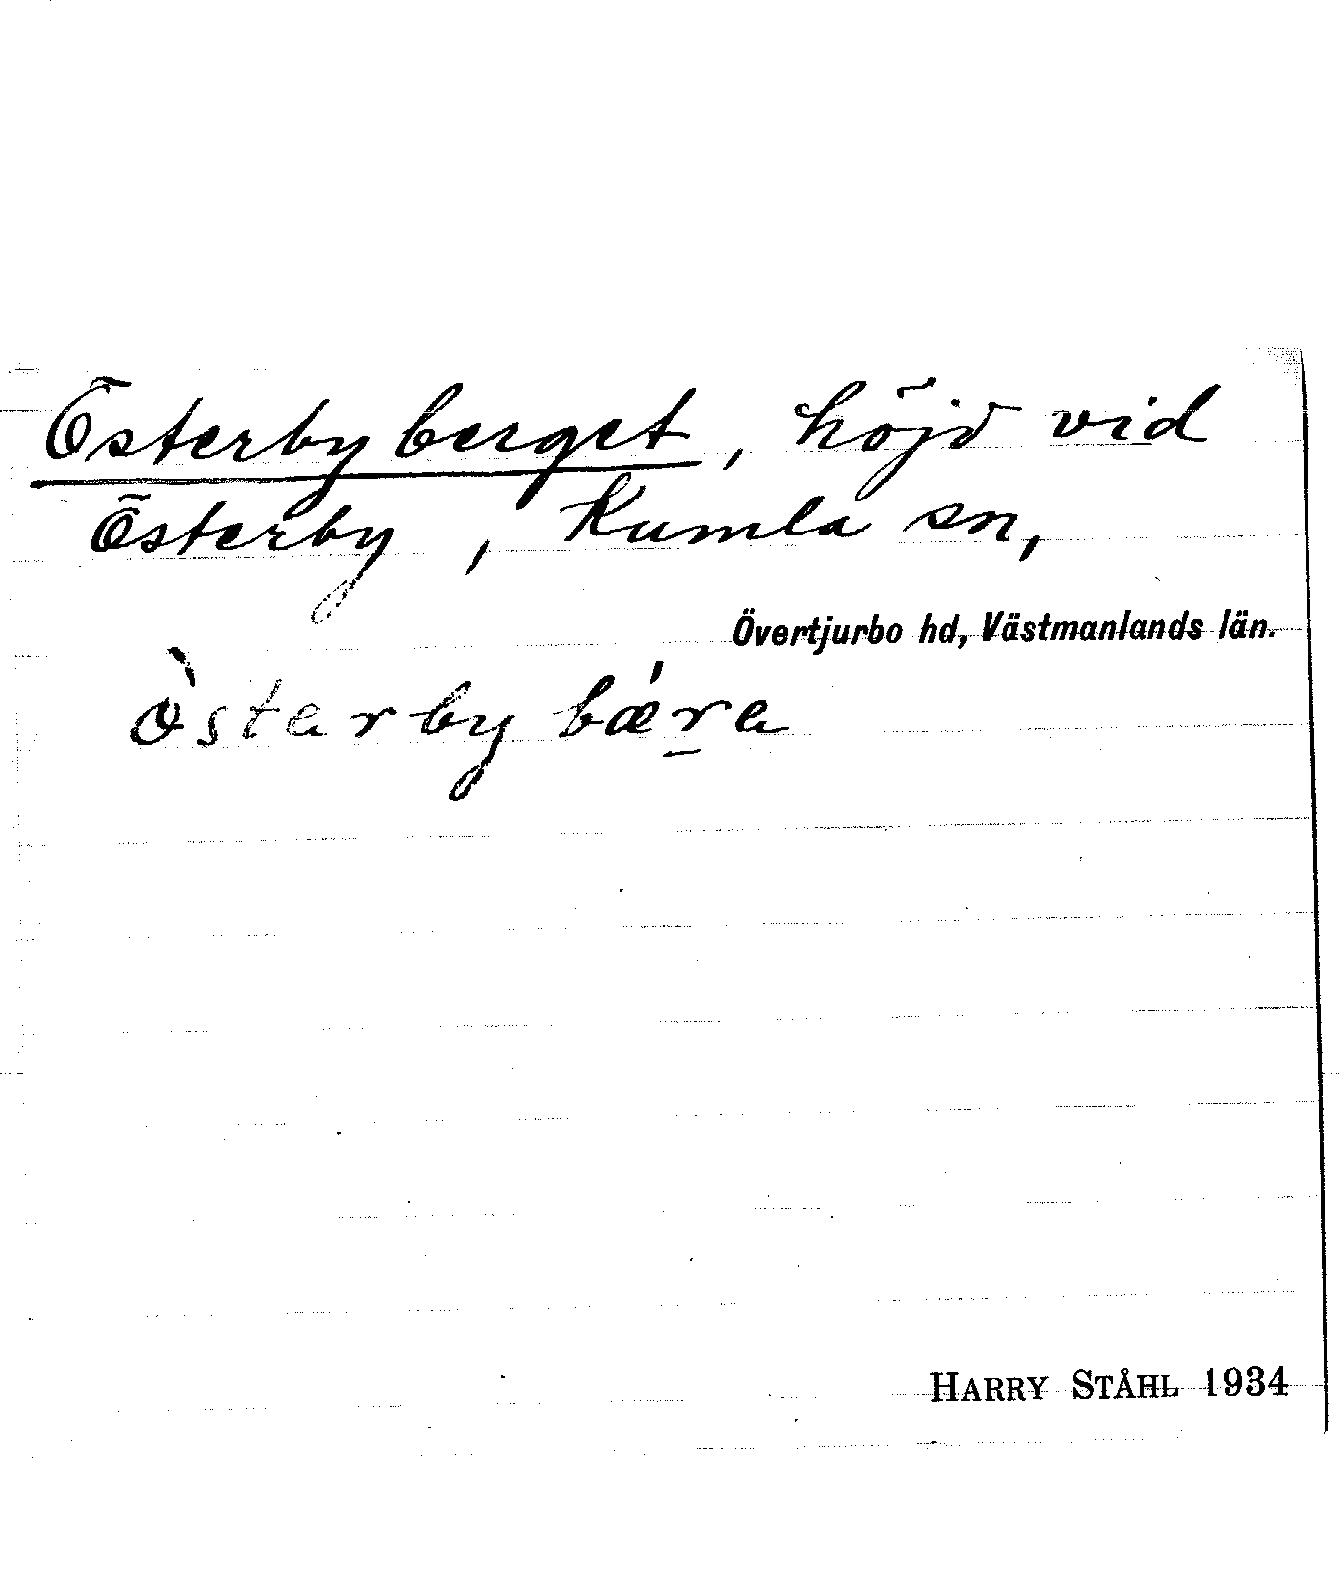 Österbyberget, höjd vid
Österby, Kumla sn,
Övertjurbo hd, Västmanlands län.
ò̀starby bǽr̲a
HARRY STÅHL 1934